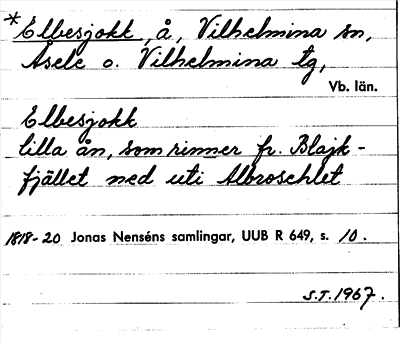 *Elbesjokk, å, Vilhelmina sn,
Åsele o. Vilhelmina tg,
Vb. län.
Elbesjokk
lilla ån, som rinner fr. Blajk-
fjället ned uti Albroschlet
1818-20 Jonas Nenséns samlingar, UUB R 649, s. 10.
S.T. 1967.